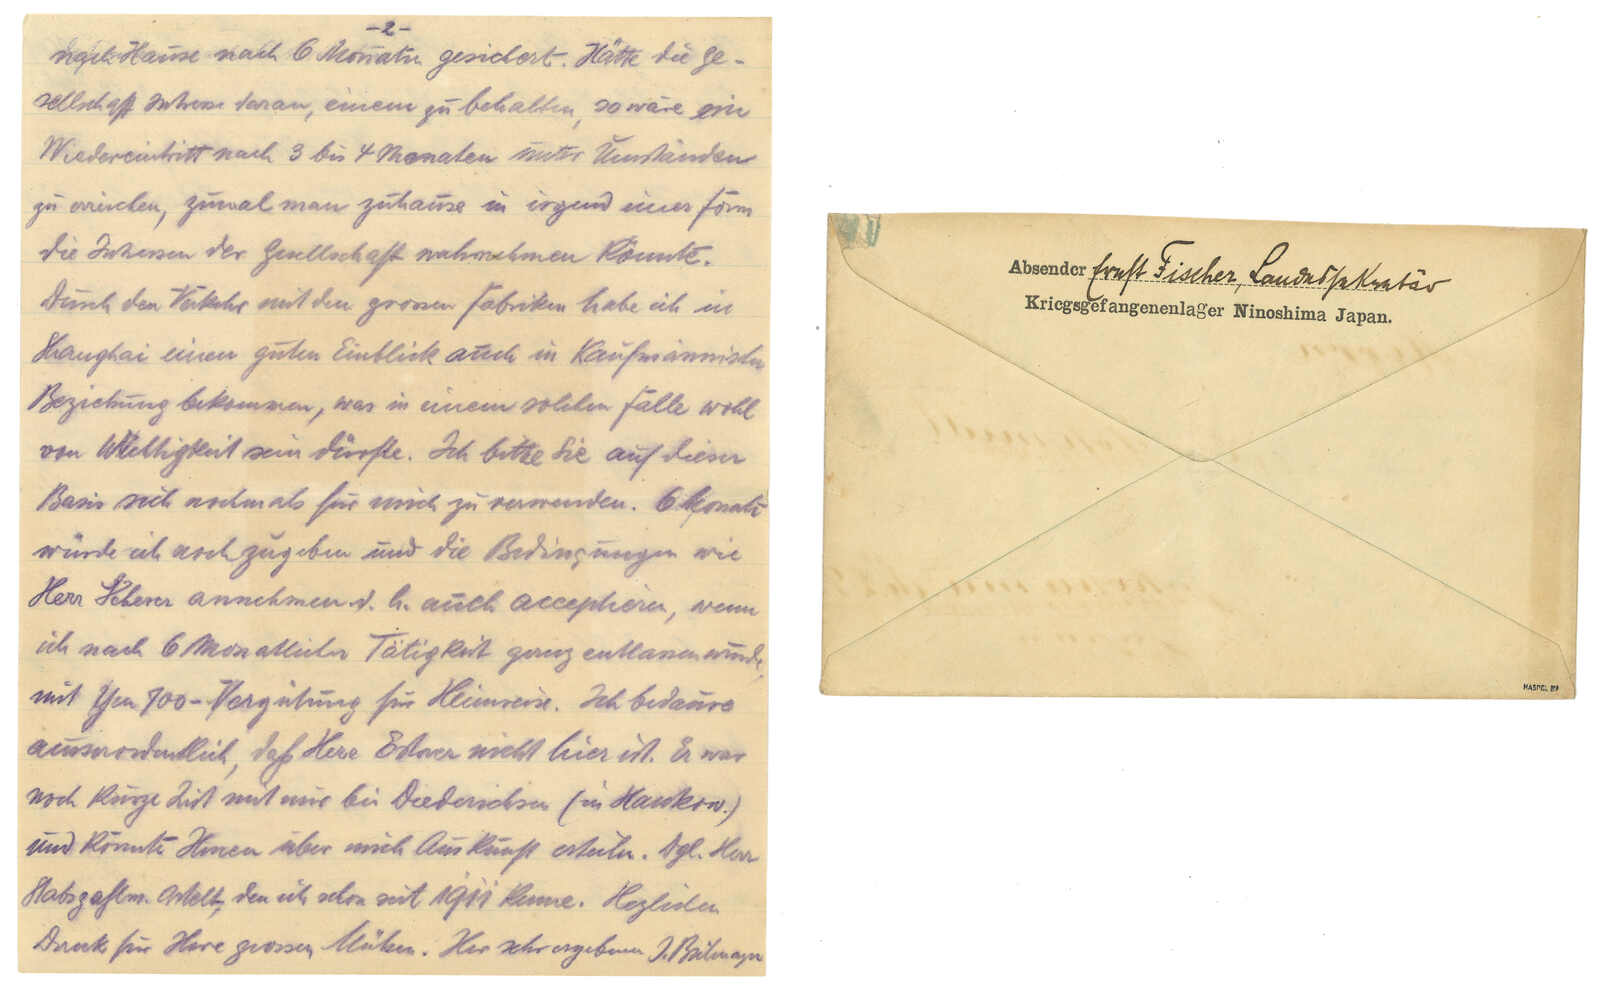 -2-
nach Hause nach 6 Monaten gesichert. Hätte die Ge-
sellschaft Interesse daran, einem zu behalten, so wäre ein
Wiedereintritt nach 3 bis 4 Monaten unter Umständen
zu erreichen, zumal man zuhause in irgend einer Form
die Interessen der Gesellschaft wahrnehmen könnte.
Durch den Verkehr mit den grossen Fabriken habe ich in
Shanghai einen guten Einblick auch in Kaufmännischer
Beziehung bekommen, was in einem solchen Falle wohl
von Wichtigkeit sein dürfte. Ich bitte Sie auf dieser
Basis sich nochmals für mich zu verwenden. 6 Monate
würde ich noch zugeben und die Bedingungen wie
Herr annehmen d. h. auch acceptieren, wenn
ich nach 6 Monatlicher Tätigkeit ganz entlassen würde,
mit Yen 700- Vergütung für Heimreise. Ich bedaure
ausserordentlich, daß Herr nicht hier ist. Er war
noch kurze Zeit mit mir bei Diederichsen (in Hankow.)
und könnte Ihnen über mich Auskunft erteilen. Dgl. Herr
Stabszahlm. den ich schon seit 1911 kenne. Herzlichen
Dank für Ihre grossen Mühen. Ihr sehr ergebener
Absender Ernst Fischer, Landessekretär
Kriegsgefangenenlager Ninoshima Japan.